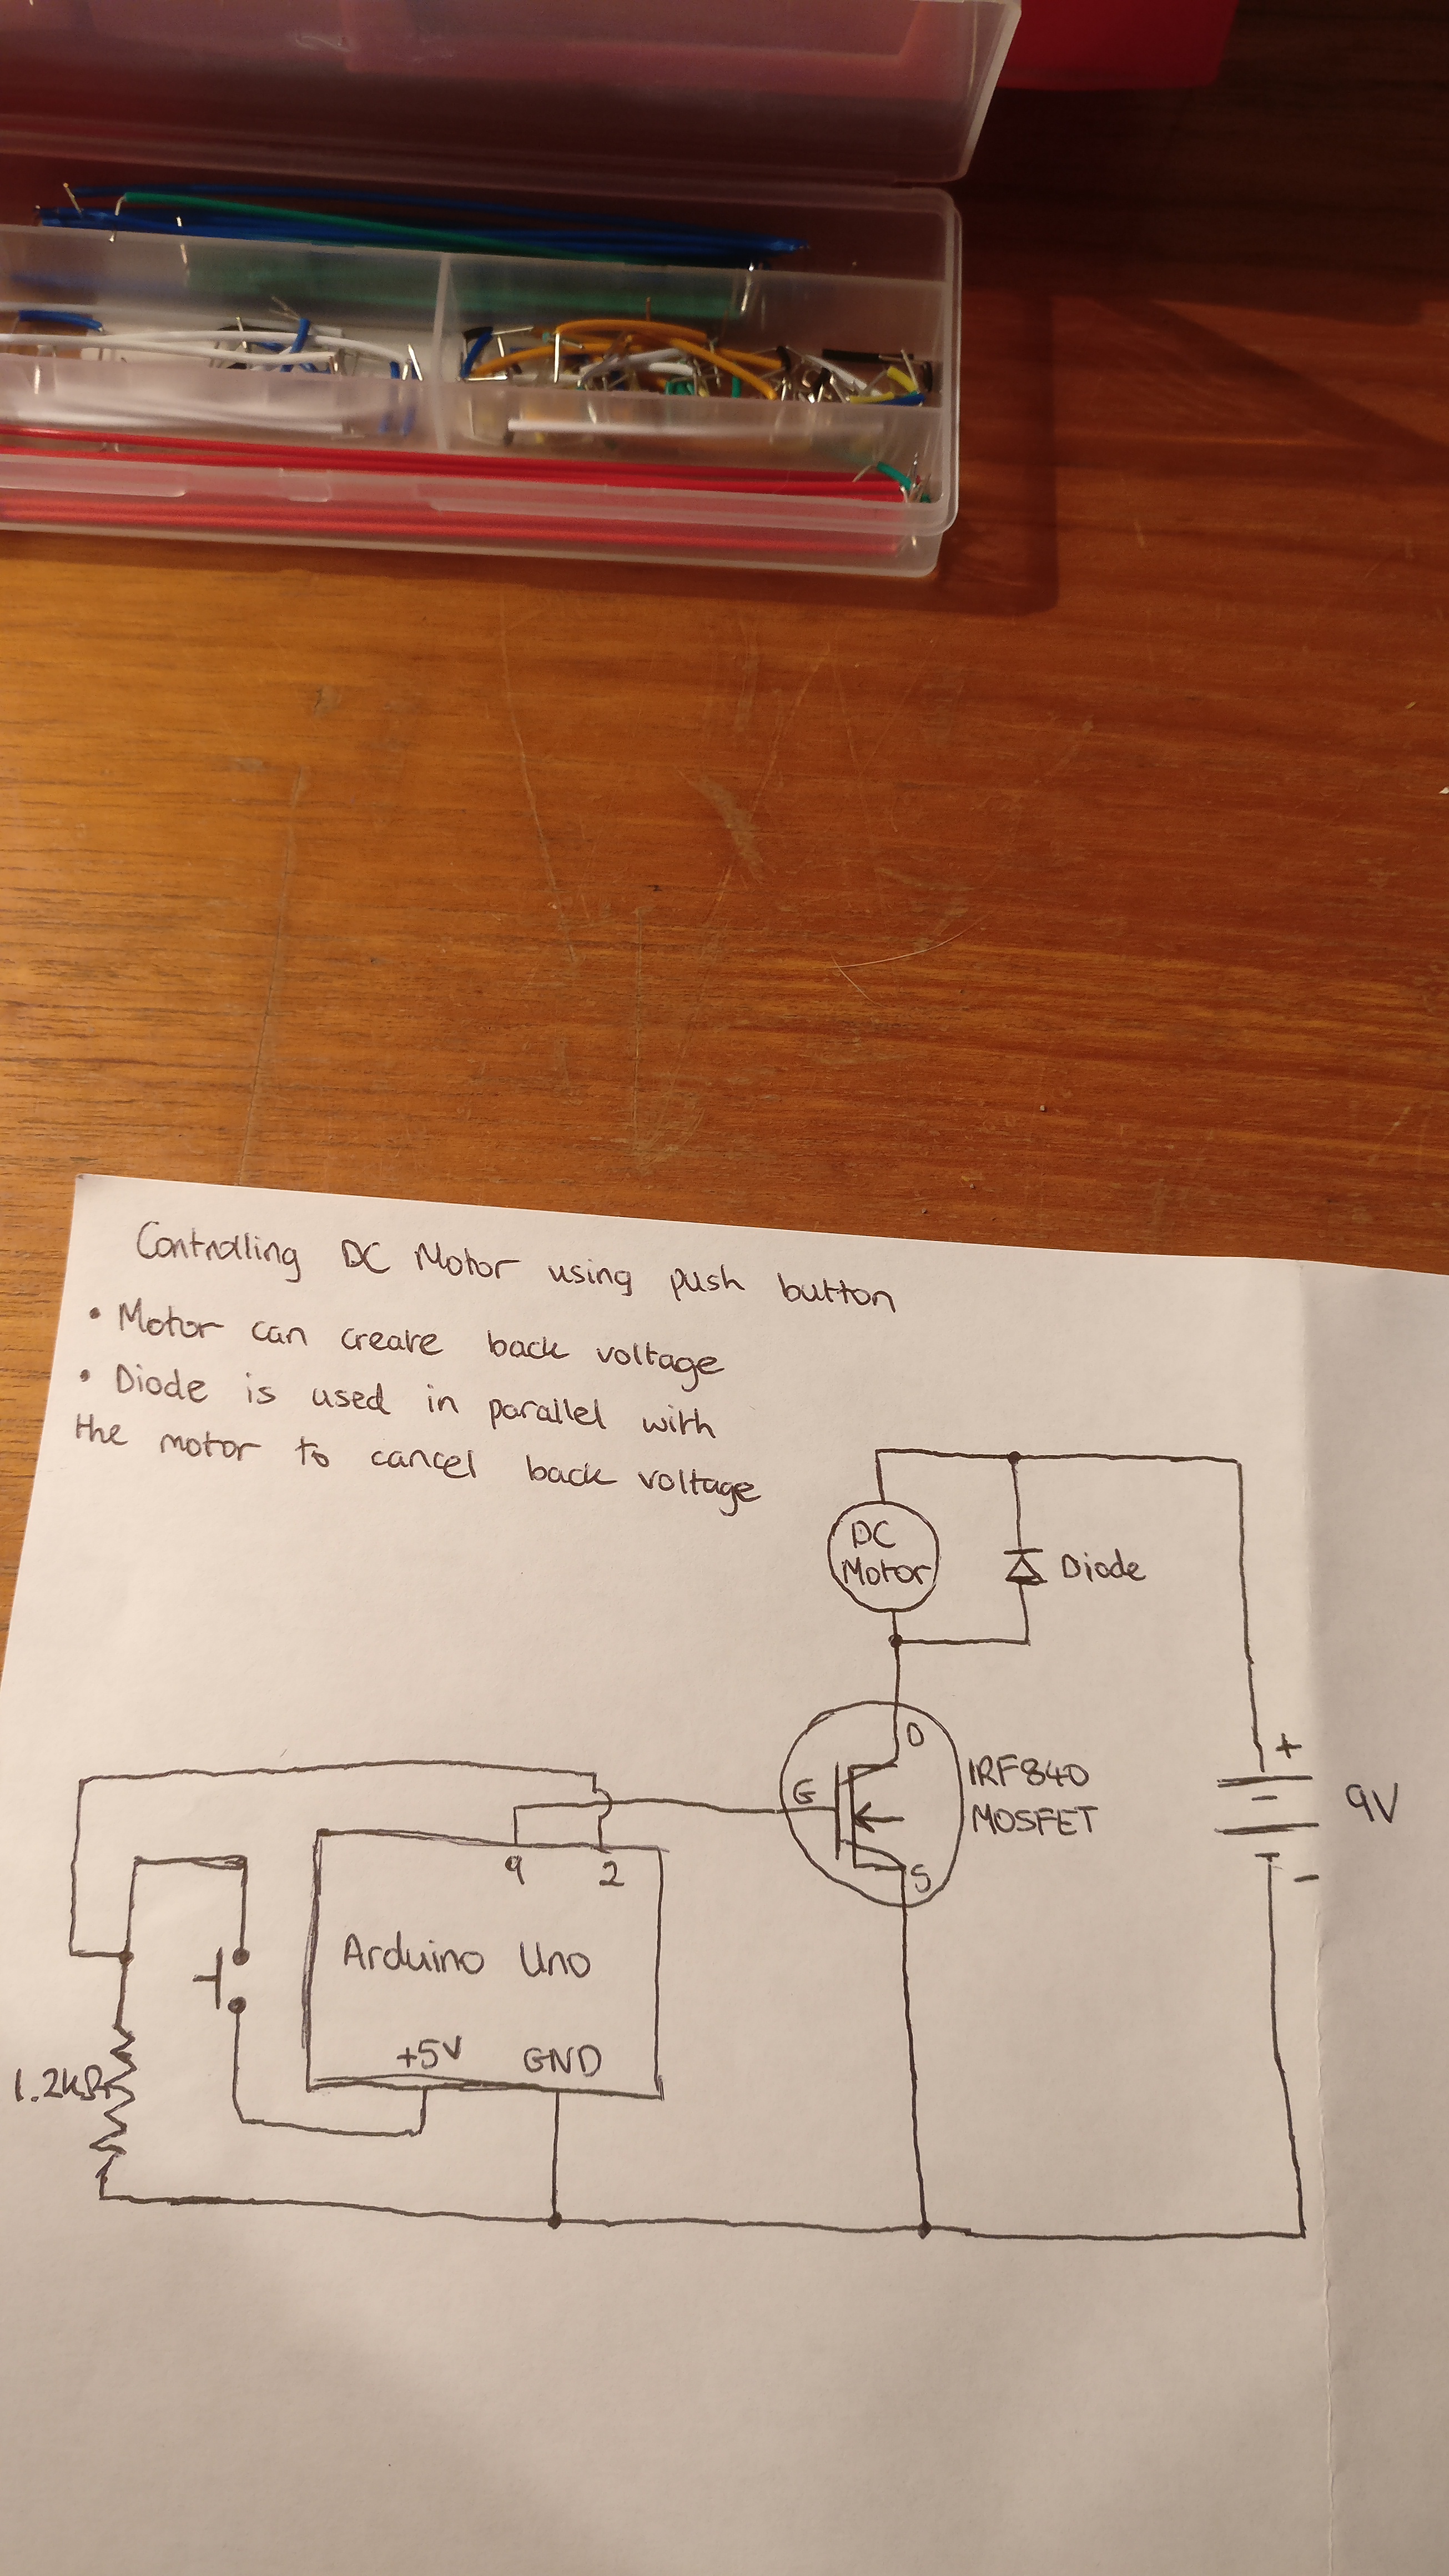 Controlling DC Motor using push button
• Motor can create back voltage
• Diode is used in parallel with
the motor to cancel back voltage
DC
Motor
Diode
D
G
S
IRF840
MOSFET
+
9V
-
9 2
Arduino Uno
+5V GND
1.2kΩ